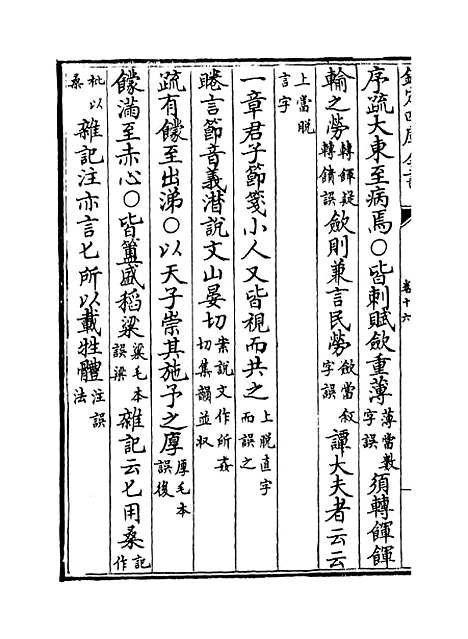 欽定四庫全書 卷十六
序疏大東至病焉〇皆刺賦斂重薄薄當數字誤須轉餫餫
輸之勞轉餫疑轉饋誤斂則兼言民勞斂當叙字誤譚大夫者云云
上當脫言字
一章君子節箋小人又皆視而共之上脫直字而誤之
睠言節音義潸說文山晏切案說文作所姦切集韻並収
疏有饛至出涕〇以天子崇其施予之厚厚毛本誤後
饛滿至赤心〇皆簠盛稻粱粱毛本誤梁雜記云匕用桑記作
枇以桑雜記注亦言匕所以載牲體注誤法